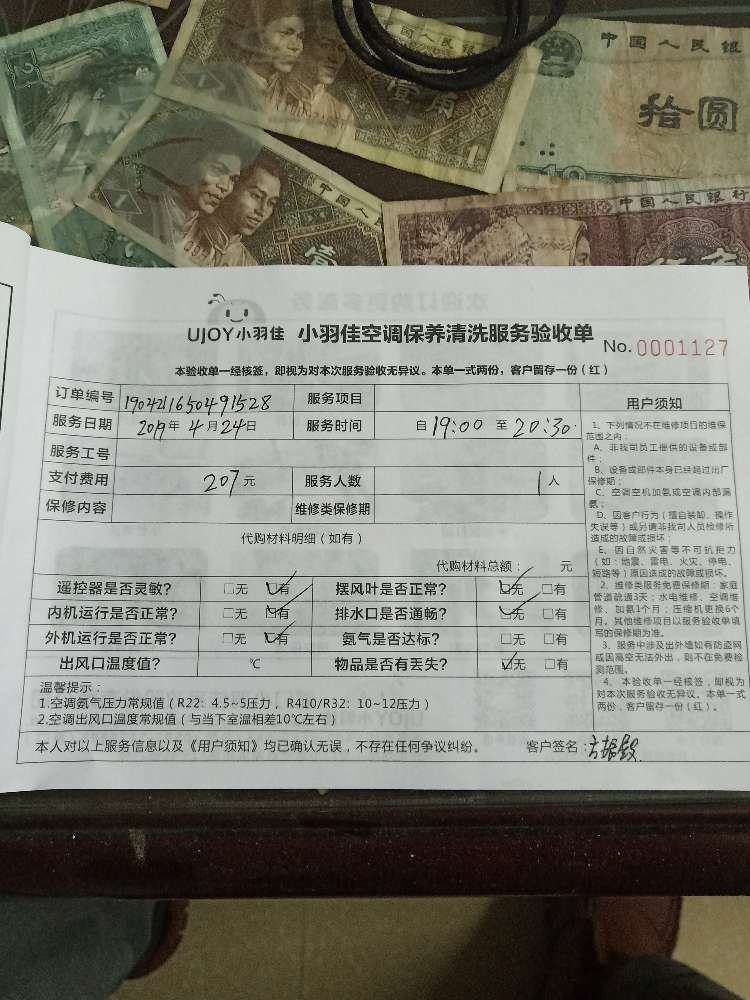 中国人民银
壹角
1
中国人民银
拾圆
10
2
1
中国人民银
壹
中国人民银行
UJOY小羽佳 小羽佳空调保养清洗服务验收单 No.0001127
本验收单一经核签，即视为对本次服务验收无异议。本单一式两份，客户留存一份（红）
订单编号 190421650491528 服务项目
服务日期 2019年4月24日 服务时间 自19:00至20:30
服务工号
支付费用 207元 服务人数 1人
保修内容 维修类保修期
代购材料明细（如有）
代购材料总额： 元
遥控器是否灵敏？ □无 □有 摆风叶是否正常？ □无 □有
内机运行是否正常？ □无 □有 排水口是否通畅？ □无 □有
外机运行是否正常？ □无 □有 氨气是否达标？ □无 □有
出风口温度值？ ℃ 物品是否有丢失？ □无 □有
温馨提示：
1.空调氨气压力常规值（R22：4.5~5压力，R410/R32：10~12压力）
2.空调出风口温度常规值（与当下室温相差10℃左右）
本人对以上服务信息以及《用户须知》均已确认无误，不存在任何争议纠纷。 客户签名：方振毅
用户须知
1、下列情况不在维修项目的维保
范围之内：
A、非我司员工提供的设备或部
件；
B、设备或部件本身已经超过出厂
保修期；
C、空调空机加氨或空调内部漏
氨；
D、因客户行为（擅自装卸、操作
失误等）或另请非我司人员检修所
造成的故障或损坏；
E、因自然灾害等不可抗拒力
（如：地震、雷电、火灾、停电、
短路等）原因造成的故障或损坏。
2、维修类服务免费保修期：家庭
管道疏通3天；水电维修、空调维
修、加氨1个月；压缩机更换6个
月。其他维修项目以服务验收单填
写的保修期为准。
3、服务中涉及出外墙如有防盗网
或因高空无法外出，则不在免费检
测范围。
4、本验收单一经核签，即视为
对本次服务验收无异议。本单一式
两份，客户留存一份（红）。